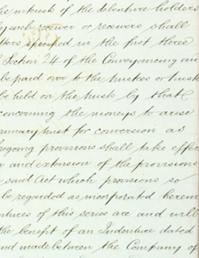 the intrust of the debenture holders
by such receiver or receivers shall
ters specified in the first three
Section 24 of the Conveyancing an
be paid over to the trustee or trust
be held on the trusts by that
concerning the moneys to arise
primary trust for conversion as
regoing provisions shall take effec
n and extension of the provisions
said Act which provisions so
be regarded as incorporated herein
ntures of this series are and will
the benefit of an Indenture dated
and made between the Company of